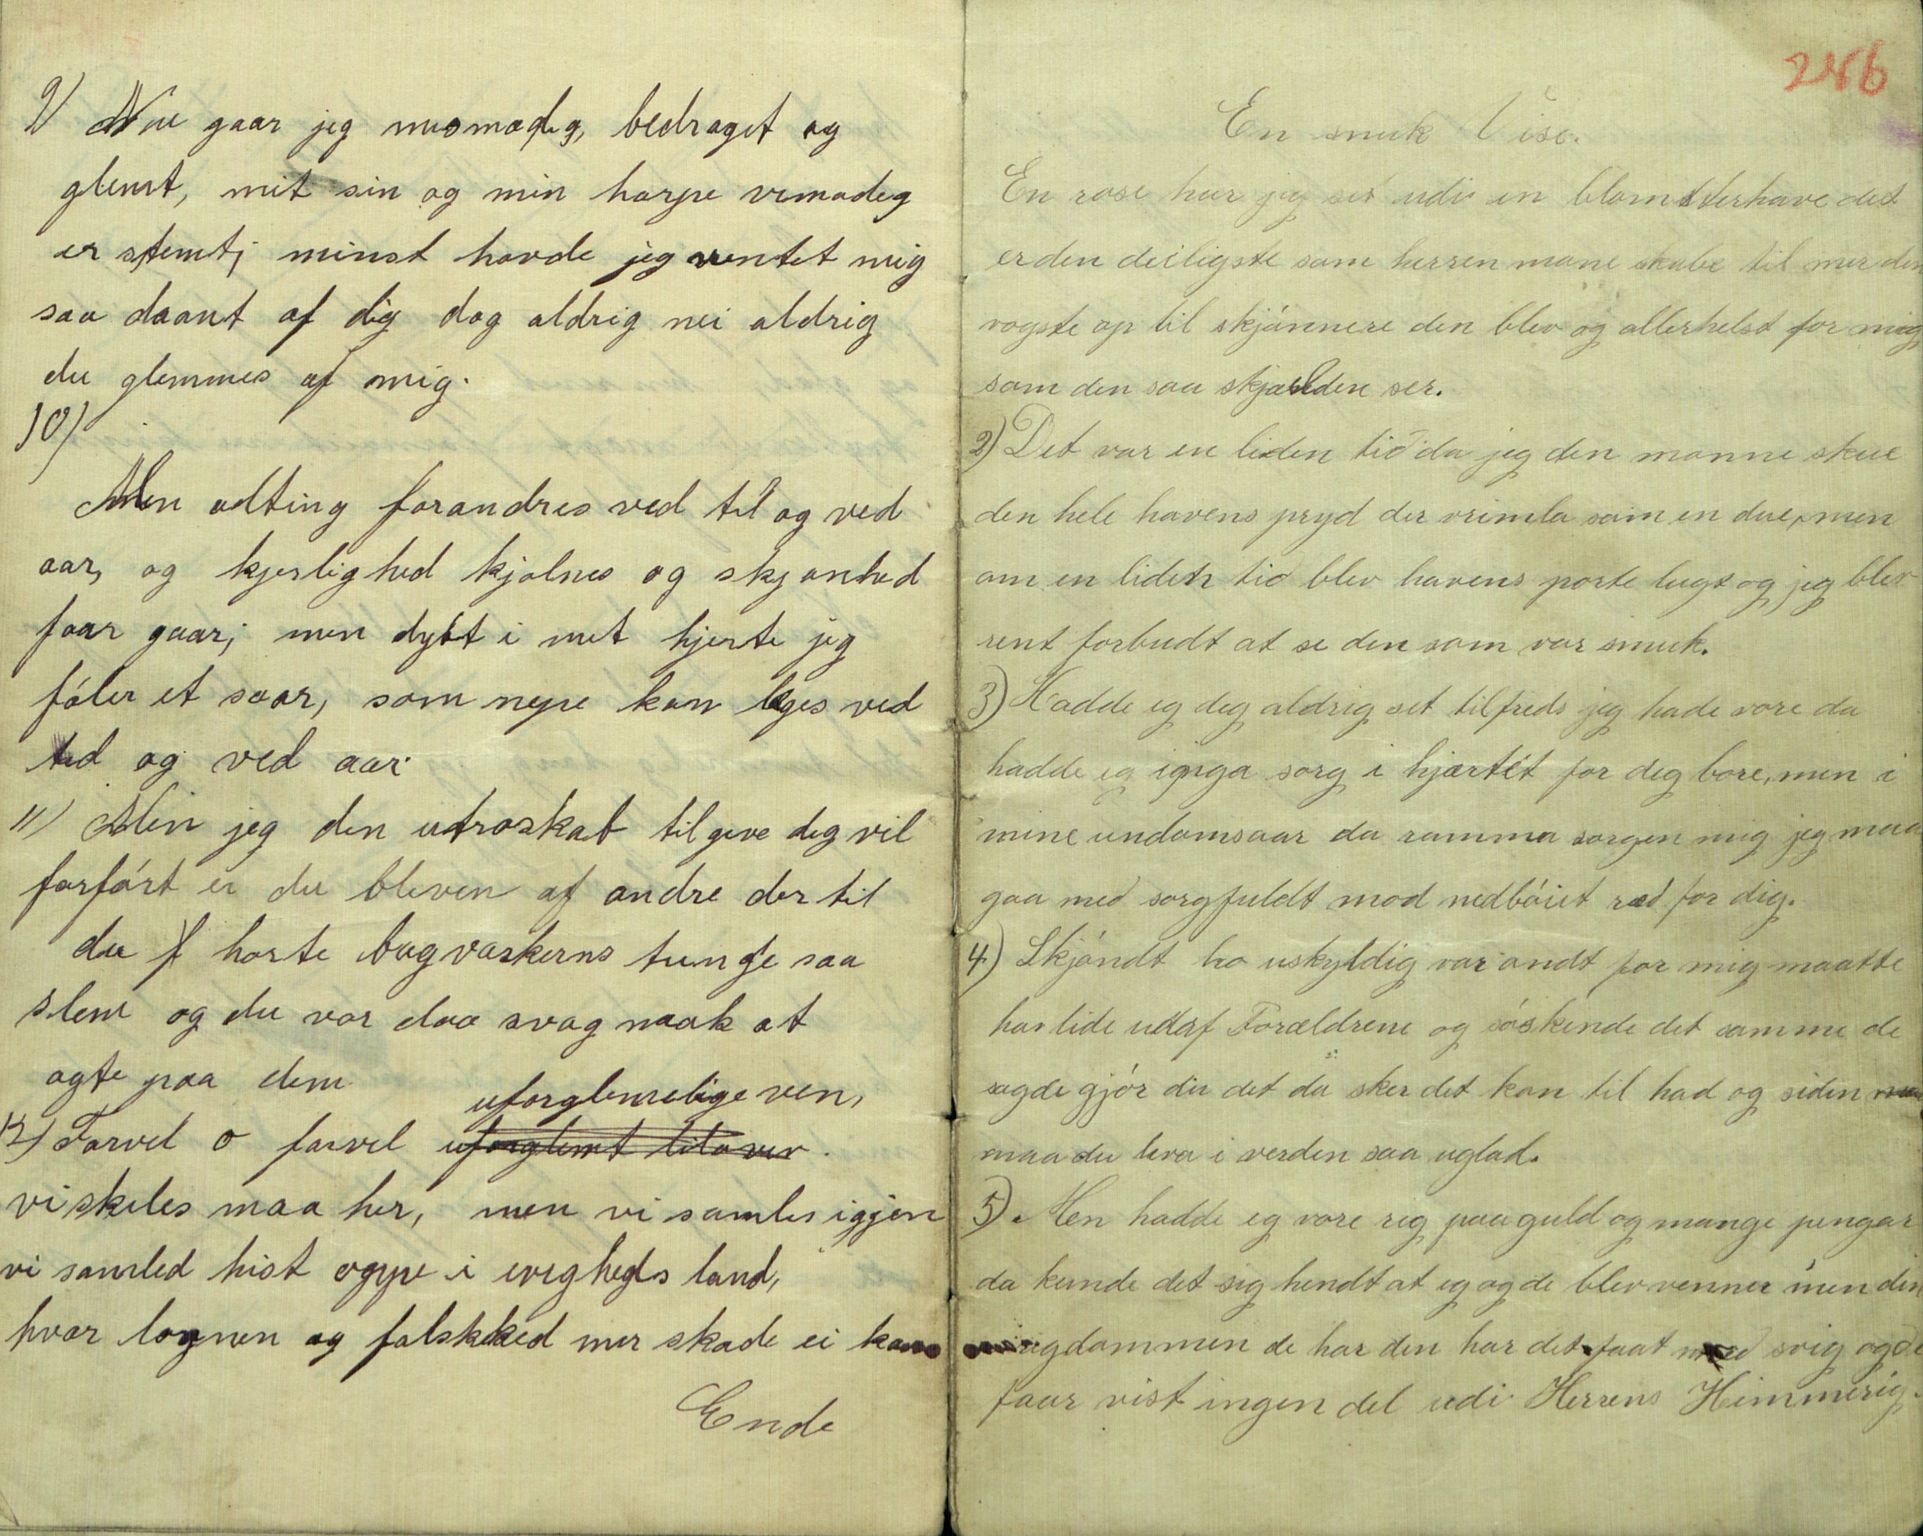 9) Nu gaar jeg mismodig, bedraget og
glemt, mit sin og min harpe vemodeg
er stemt; minst havde jeg ventet mig
saa daant af dig dog aldrig nei aldrig
du glemmes af mig.
10)
Men alting forandres ved til og ved
aar, og kjerlighed kjolnes og skjonhed
faar gaar; men dybt i mit hjerte jeg
føler et saar, som neppe kan leges ved
tid og ved aar.
11) Men jeg den utroskab tilgive dig vil
forført er du bleven af andre der til
du horte bagvaskerns tunge saa
slem og du var daa svag naok at
agte paa dem
uforglemelige ven,
12) Farvel o farvel uforglemt
vi skiles maa her, men vi samles iggjen
vi samled hist oppe i evigheds land,
hvor lognen og falskhed mer skade ei kan
Ende
246
En smuk Vise.
En rose har jeg set udi en blomsterhave det
er den deiligste som herren mone skabe til mer den
vogste op til skjønnere den blev og allerhelst for mig
som den saa skjælden ser.
2) Det var en liden tid da jeg den monne skue
den hele havens pryd der vrimla som en due, men
om en liden tid blev havens porte lugt og jeg blev
rent forbudt at se den som var smuk.
3) Hadde eg deg aldrig set tilfreds jeg hade vore da
hadde eg ingga sorg i hjærtet for deg bore, men i
mine undomsaar da ramma sorgen mig jeg maa
gaa med sorgfuldt mod nedbøiet ræd for dig.
4) Skjøndt ho uskyldig var ondt for mig maatte
ho lide udaf Forældrene og søskende det samme de
sagde gjør du det da sker det kan til had og siden
maa du leva i verden saa uglad.
5) Men hadde eg vore rig paa guld og mange pengar
da kunde det sig hendt at eg og de blev venner men din
rigdommen de har den har det faat med svig og de
faar vist ingen del udi Herrens Himmerig.